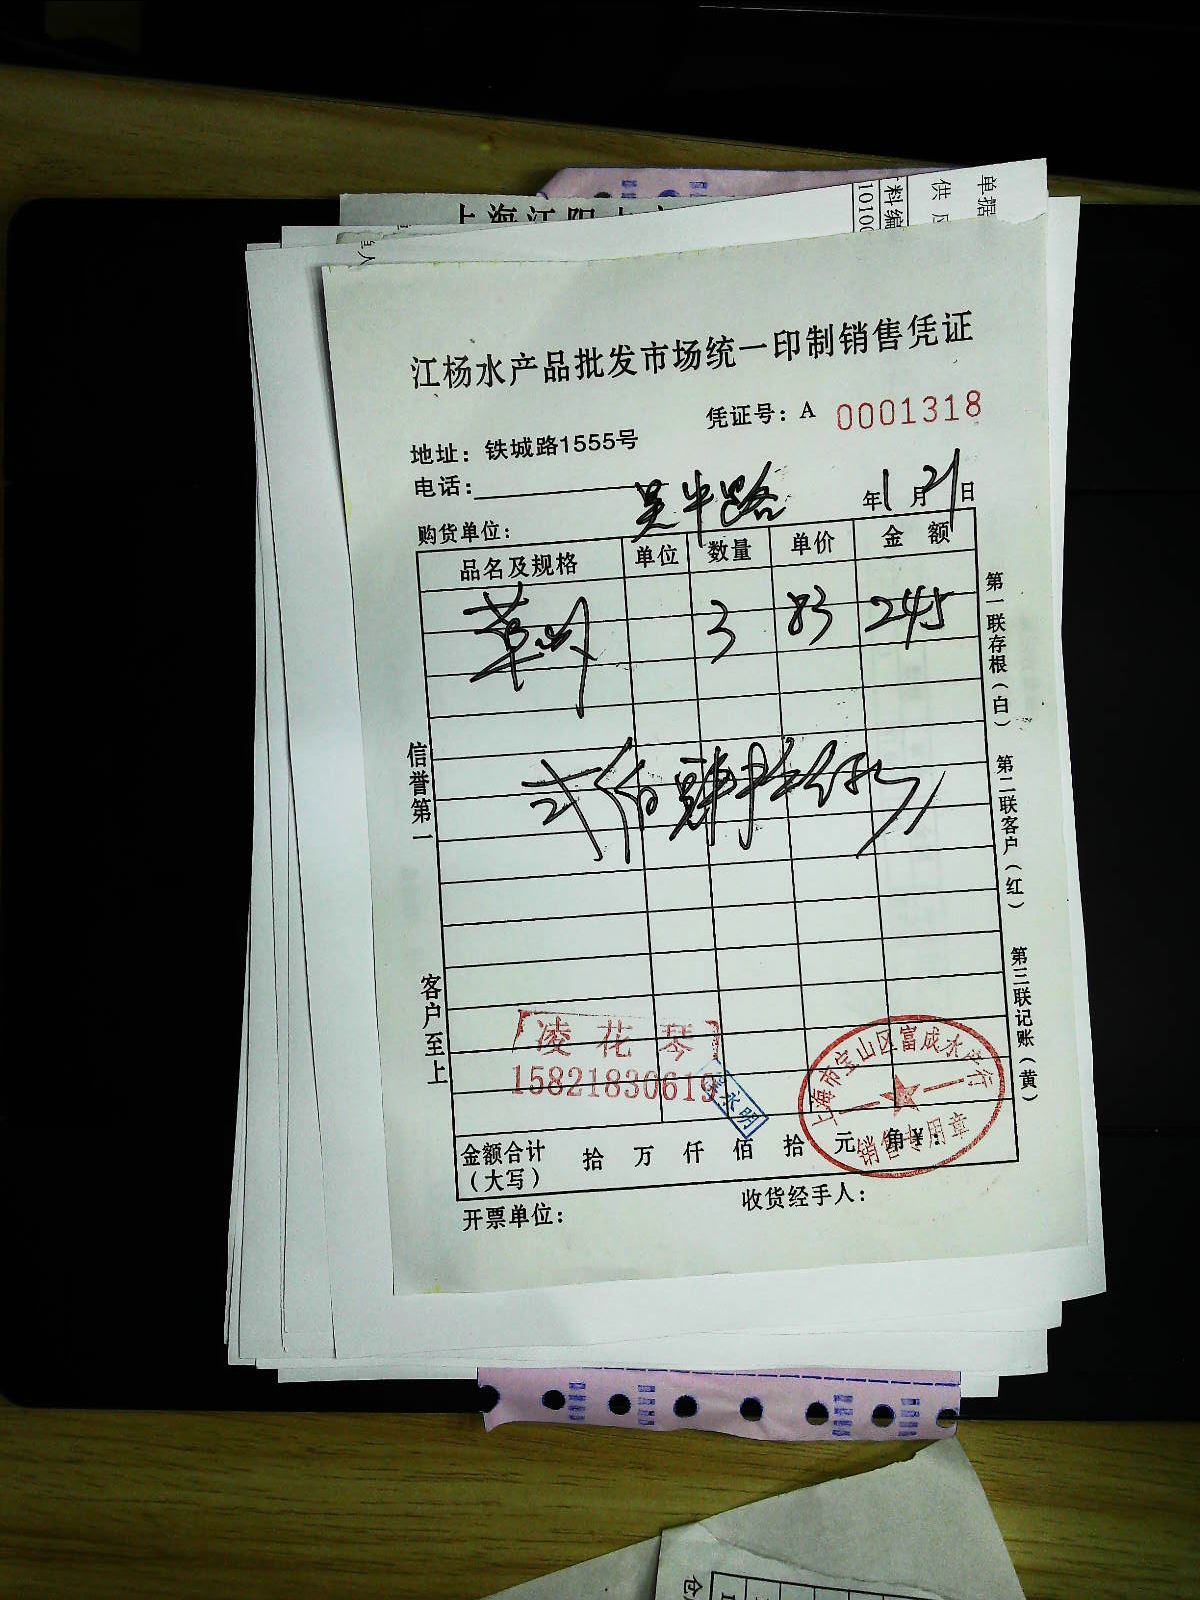 上海江阳水产
单据
供应
料编
10100
江杨水产品批发市场统一印制销售凭证
凭证号：A 0001318
地址：铁城路1555号
电话：
购货单位：吴中路 年1月21日
品名及规格 单位 数量 单价 金额
草虾 3 83 245
贰佰肆拾伍元
信誉第一
客户至上
第一联存根（白）
第二联客户（红）
第三联记账（黄）
凌花琴
15821830619
永明
上海市宝山区富成水产行
销售专用章
金额合计（大写） 拾 万 仟 佰 拾 元 角 ¥：
开票单位： 收货经手人：